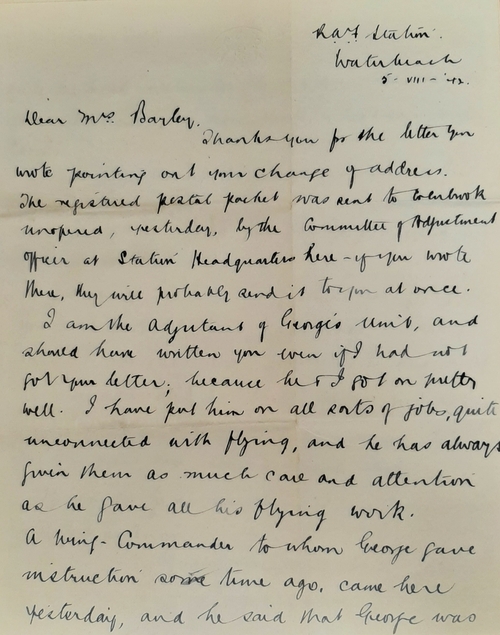 R.A.F Station.
Waterbeach
5 - VIII - '42.
Dear Mrs. Bayley.
Thank you for the letter you
wrote pointing out your change of address.
The registered postal packet was sent to Colnbrook
unopened, yesterday, by the Committee of Adjustment
Officer at Station Headquarters here - if you wrote
there, they will probably send it to you at once.
I am the Adjutant of George's unit, and
should have written you even if I had not
got your letter; because he & I got on pretty
well. I have put him on all sorts of jobs, quite
unconnected with flying, and he has always
given them as much care and attention
as he gave all his flying work.
A Wing-Commander to whom George gave
instruction some time ago, came here
yesterday, and he said that George was